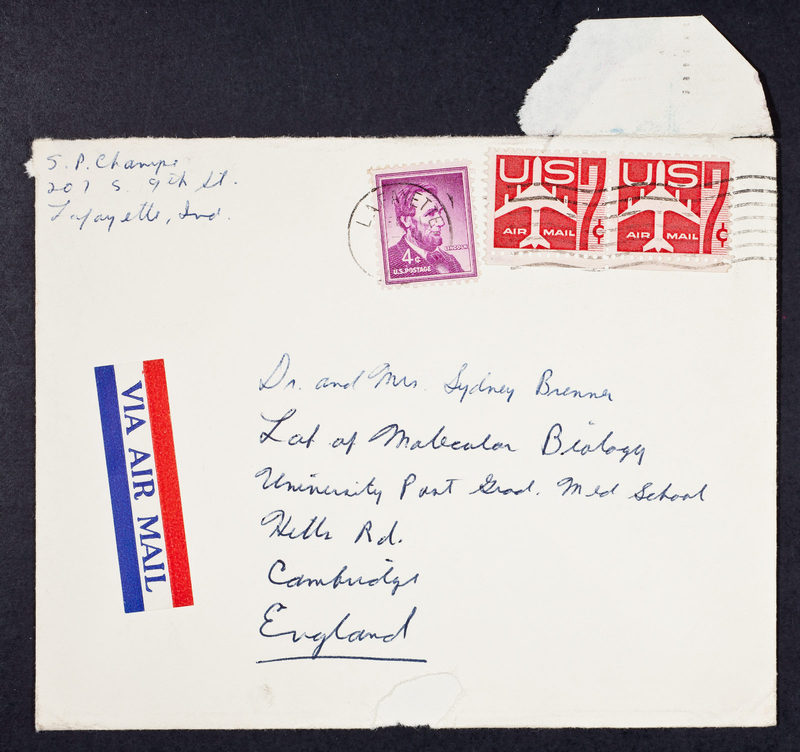 S. P. Champe
207 S. 9th St.
Lafayette, Ind.
LAFAYETTE
4¢
LINCOLN
U.S. POSTAGE
US 7¢
AIR MAIL
US 7¢
AIR MAIL
VIA AIR MAIL
Dr. and Mrs. Sydney Brenner
Lab of Molecular Biology
University Post Grad. Med School
Hills Rd.
Cambridge
England